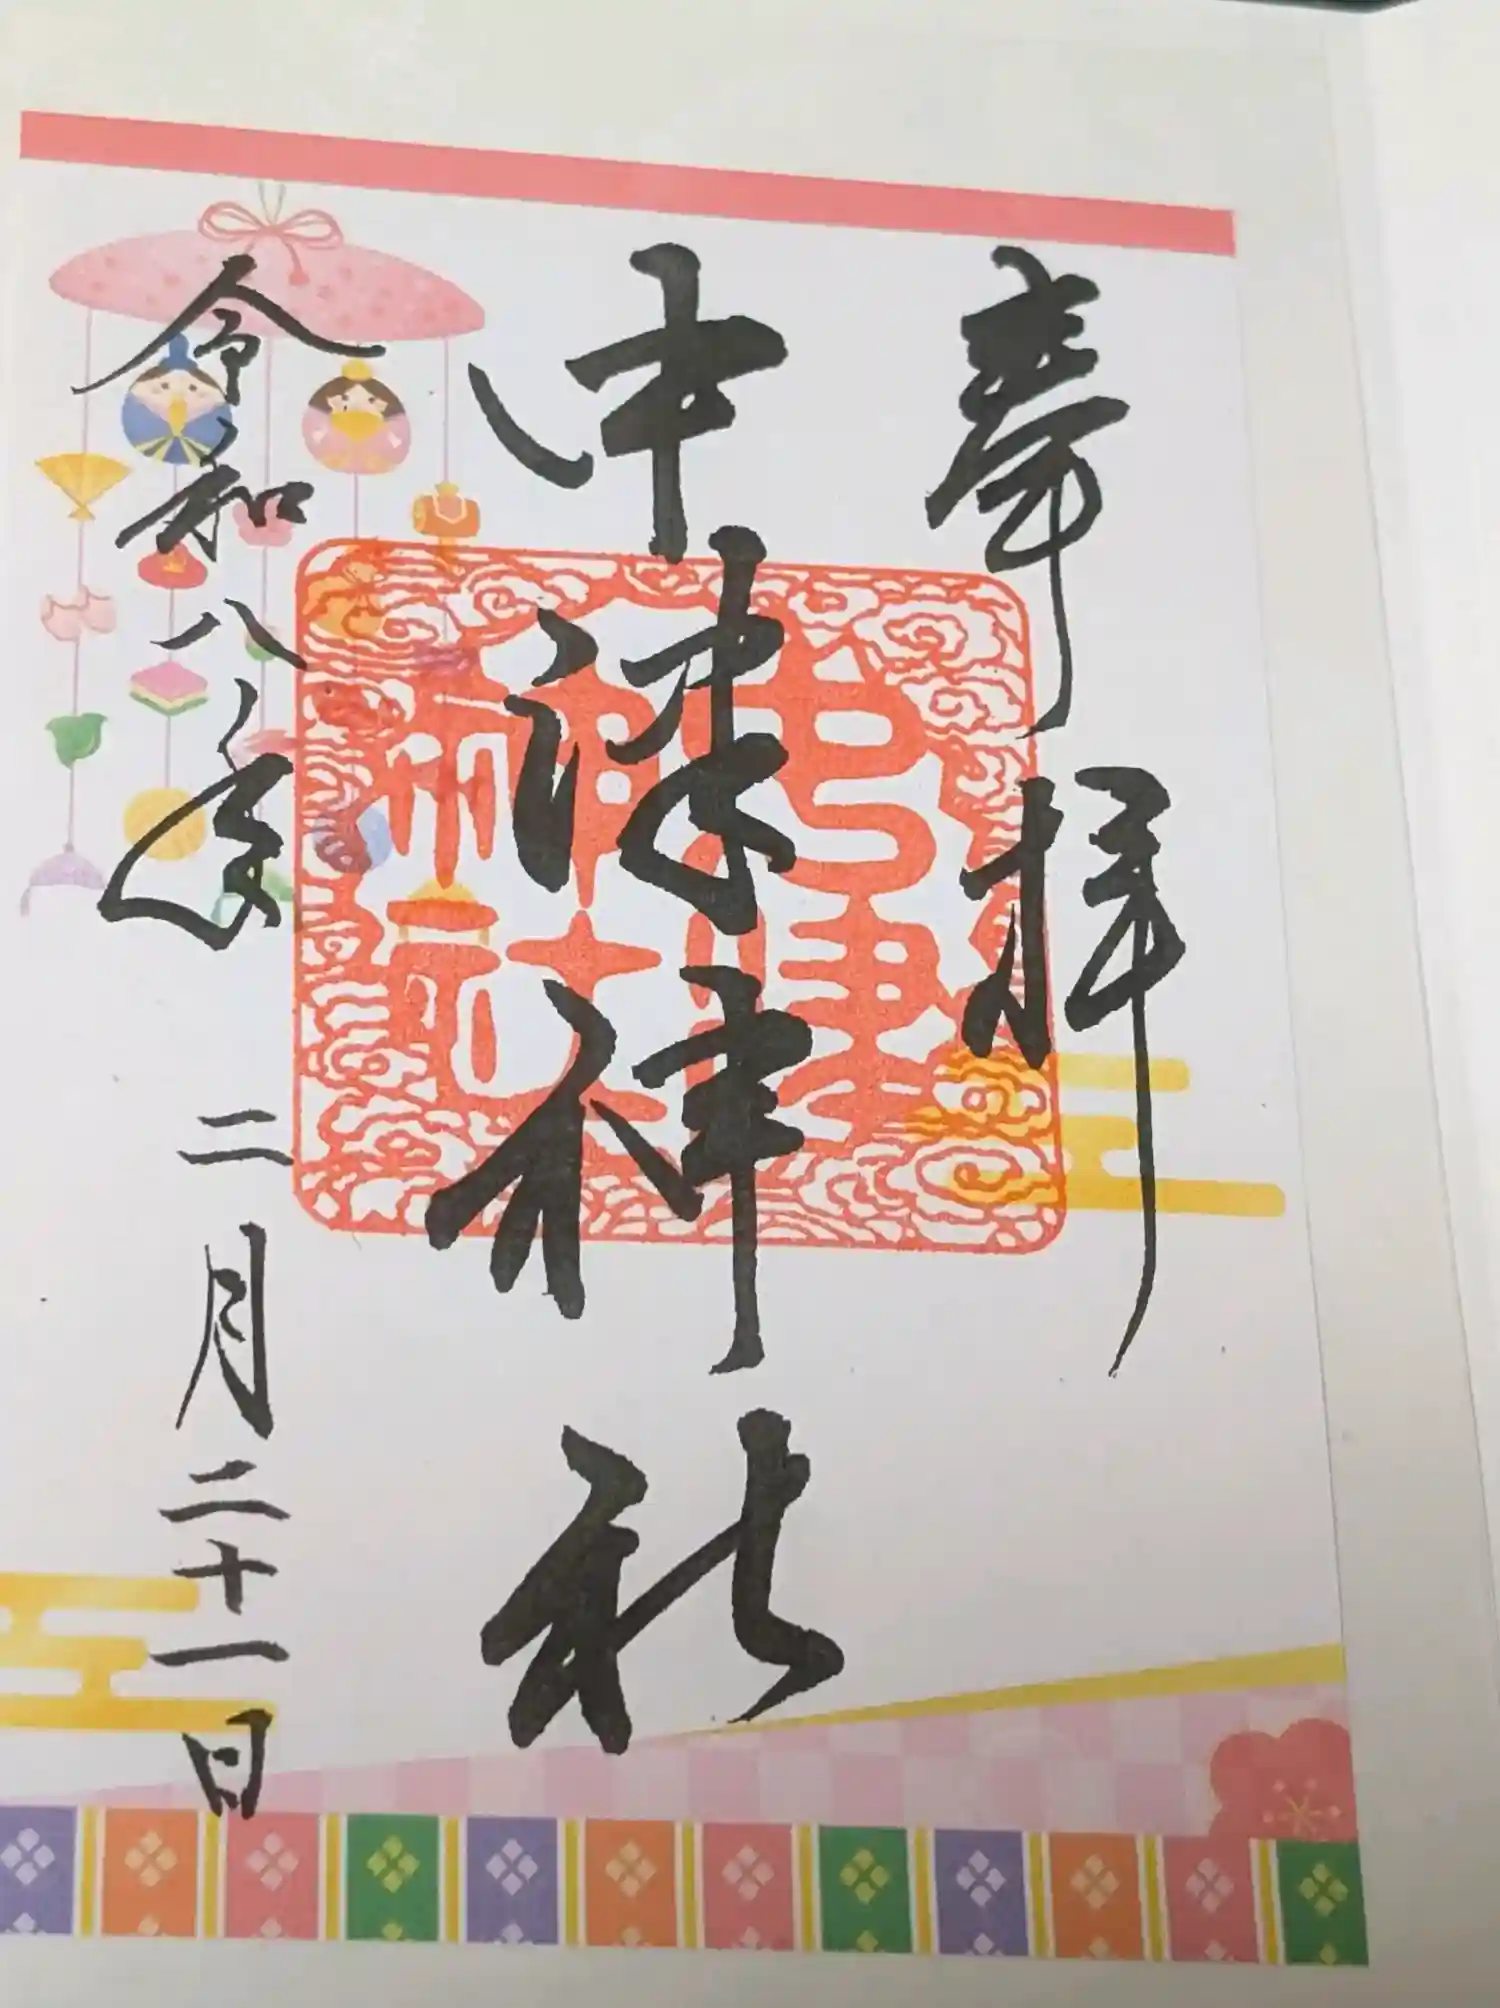 奉拝
中津神社
令和八年 二月二十一日
中津神社